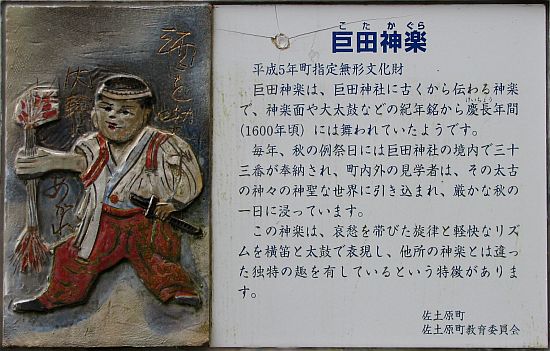 こたかぐら
巨田神楽
平成5年町指定無形文化財
巨田神楽は、巨田神社に古くから伝わる神楽
で、神楽面や大太鼓などの紀年銘から慶長年間
けいちょう
(1600年頃)には舞われていたようです。
毎年、秋の例祭日には巨田神社の境内で三十
三番が奉納され、町内外の見学者は、その太古
の神々の神聖な世界に引き込まれ、厳かな秋の
一日に浸っています。
この神楽は、哀愁を帯びた旋律と軽快なリズ
ムを横笛と太鼓で表現し、他所の神楽とは違っ
た独特の趣を有しているという特徴がありま
す。
佐土原町
佐土原町教育委員会